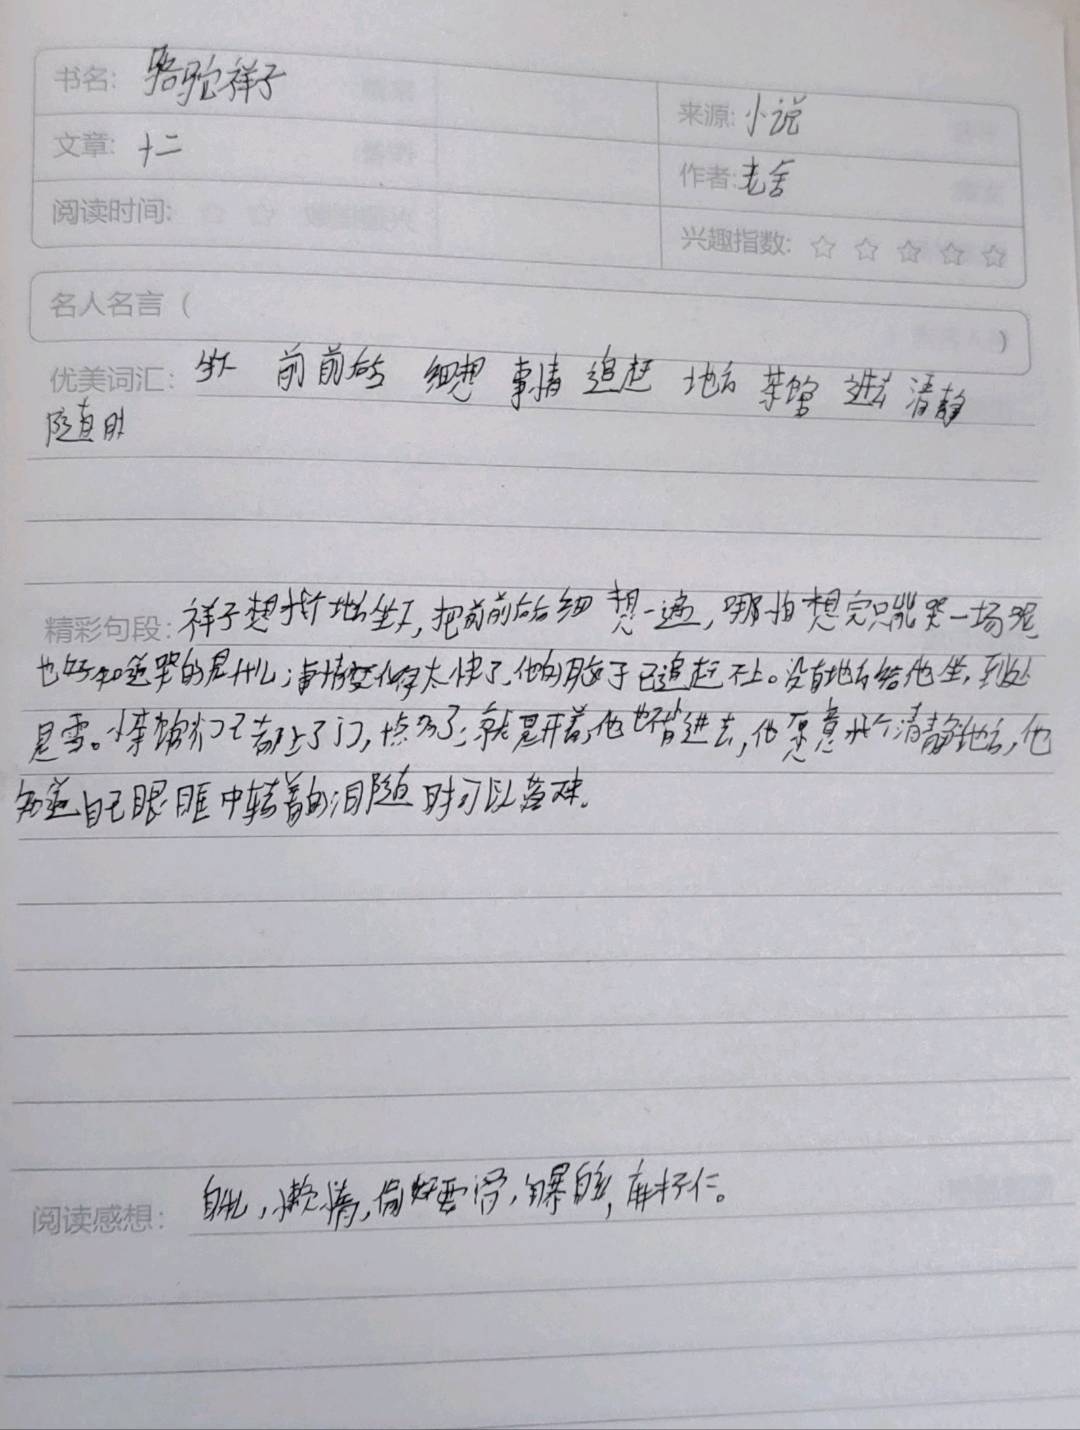 书名: 骆驼祥子
来源: 小说
文章: 十二
作者: 老舍
阅读时间:
兴趣指数: ☆ ☆ ☆ ☆ ☆
名人名言 ( )
优美词汇: 坐下 前前后后 细想 事情 追赶 地方 茶馆 进去 清静
随时
精彩句段: 祥子想找个地方坐下,把前前后后细想一遍,哪怕想完只能哭一场呢
也好知道哭的是什么;事情变化得太快了,他的脑子已追赶不上。没有地方给他坐,到处
是雪。小茶馆们已都上了门,十点多了;就是开着,他也不肯进去,他愿意找个清静地方,他
知道自己眼眶中转着的泪随时可以落下来.
阅读感想: 自私,懒惰,